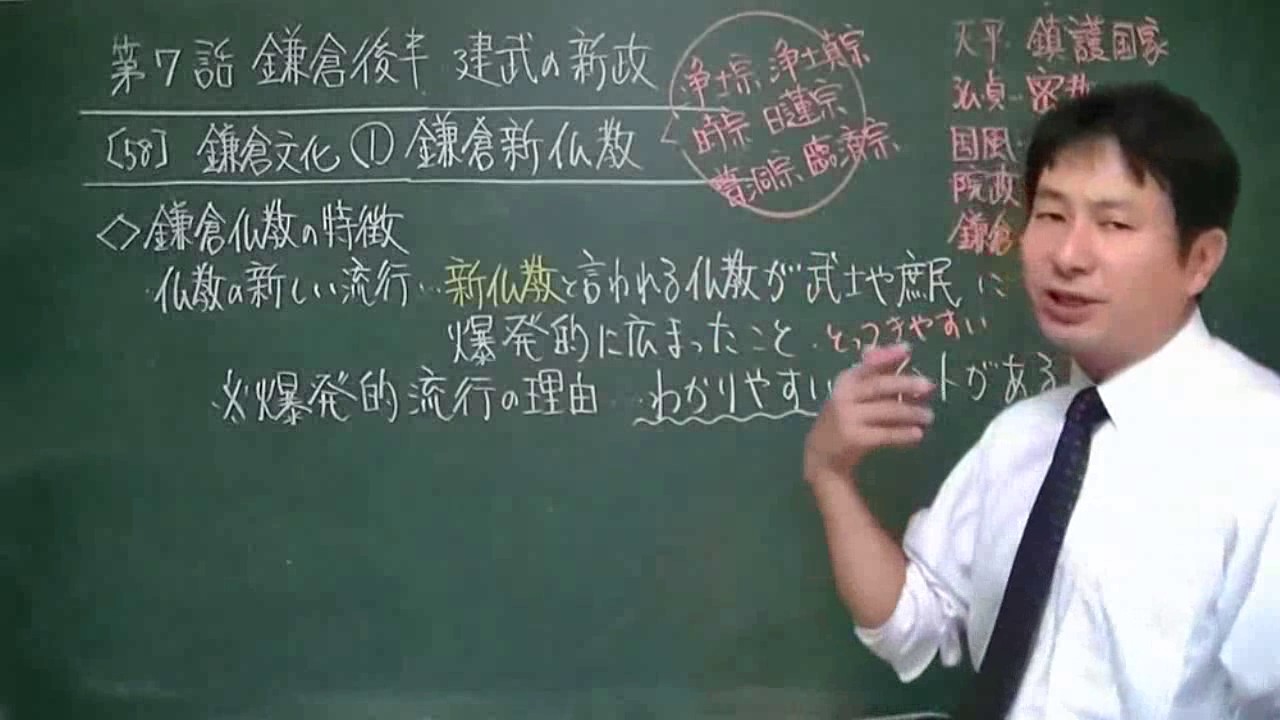 第7話 鎌倉後半 建武の新政
[58] 鎌倉文化① 鎌倉新仏教
浄土宗 浄土真宗
時宗 日蓮宗
曹洞宗 臨済宗
◇鎌倉仏教の特徴
仏教の新しい流行…新仏教と言われる仏教が武士や庶民に
爆発的に広まったこと とっつきやすい
※爆発的流行の理由…わかりやすい トがある
天平 鎮護国家
弘貞 密教
国風
院政
鎌倉